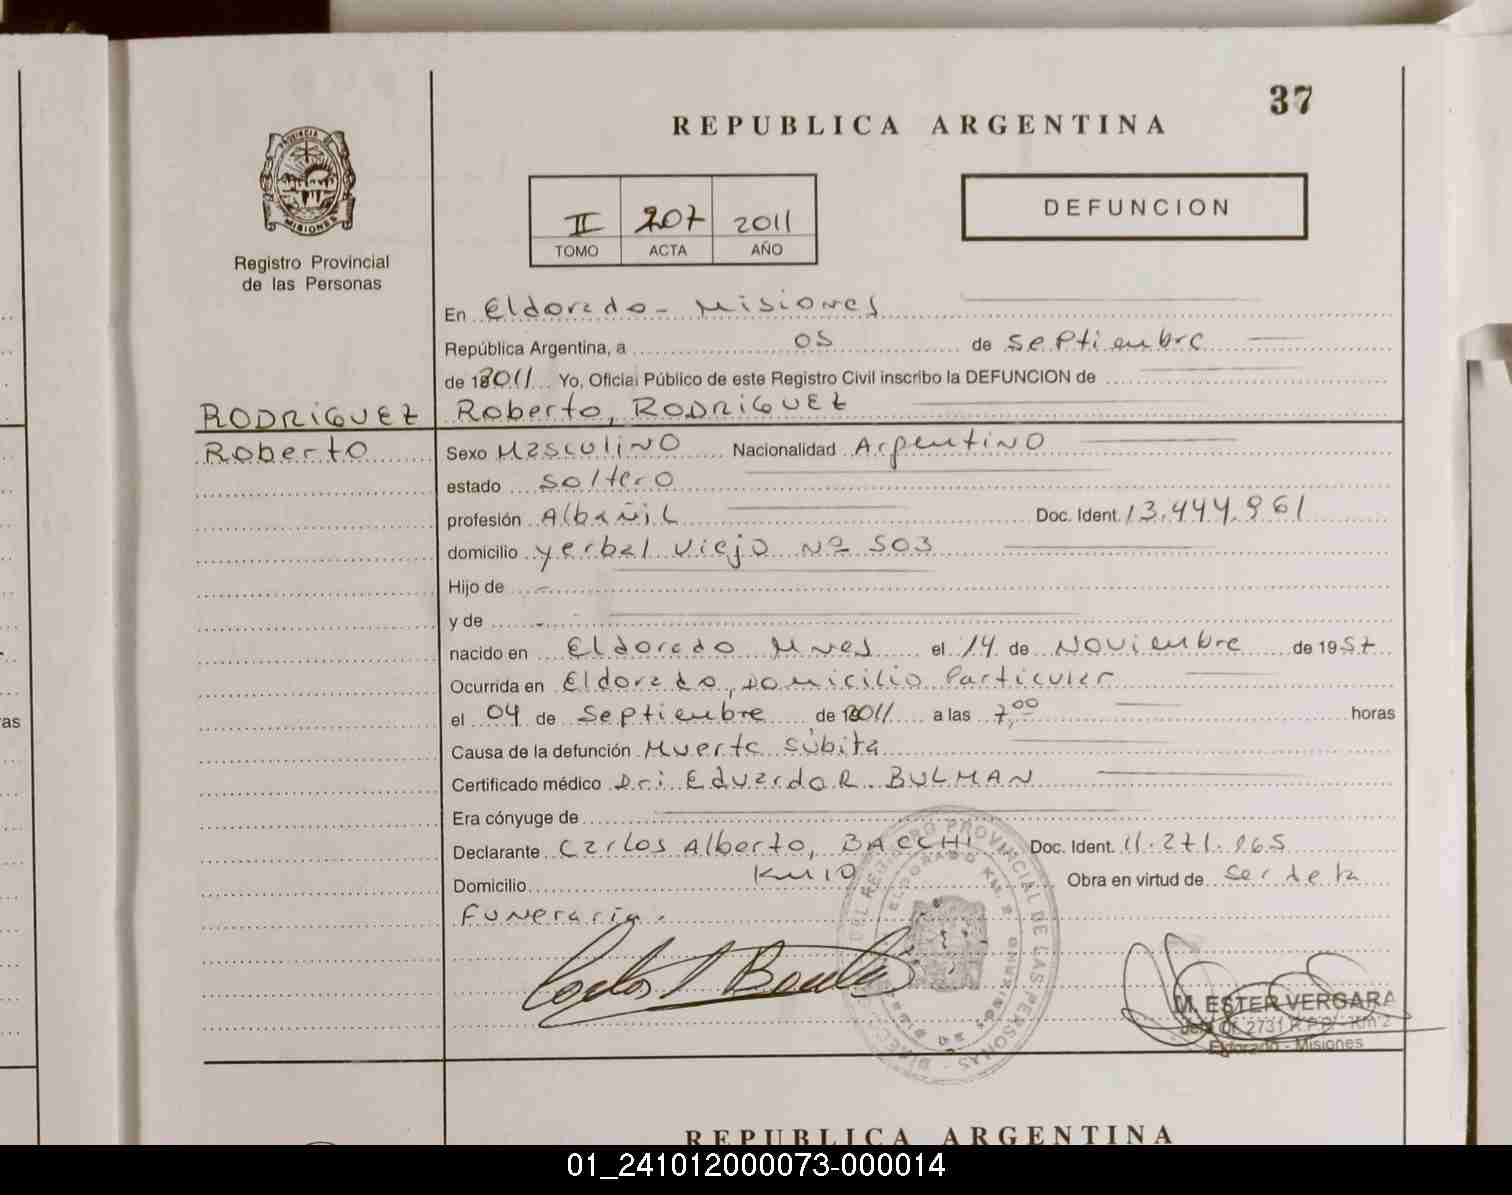 37
REPUBLICA ARGENTINA
PROVINCIA DE
MISIONES
Registro Provincial
de las Personas
II 207 2011
TOMO ACTA AÑO
DEFUNCION
En Eldorado - Misiones
República Argentina, a 05 de Septiembre
de 2011 Yo, Oficial Público de este Registro Civil inscribo la DEFUNCION de
RODRIGUEZ Roberto, RODRIGUEZ
Roberto Sexo Masculino Nacionalidad Argentino
estado Soltero
profesión Albañil Doc. Ident. 13.444.961
domicilio Yerbal Viejo Nº 503
Hijo de -
y de -
nacido en Eldorado Mnes el 14 de Noviembre de 1957
Ocurrida en Eldorado, Domicilio Particular
el 04 de Septiembre de 2011 a las 7,00 horas
as
Causa de la defunción Muerte Súbita
Certificado médico Dr: Eduardo R. BULMAN
Era cónyuge de
Declarante Carlos Alberto, BACCHI Doc. Ident. 11.271.965
Domicilio Km 10 Obra en virtud de Ser de la
Funeraria.
M. ESTER VERGARA
2731 R.P.P. - Km 2
Eldorado - Misiones
REPUBLICA ARGENTINA
01_241012000073-000014